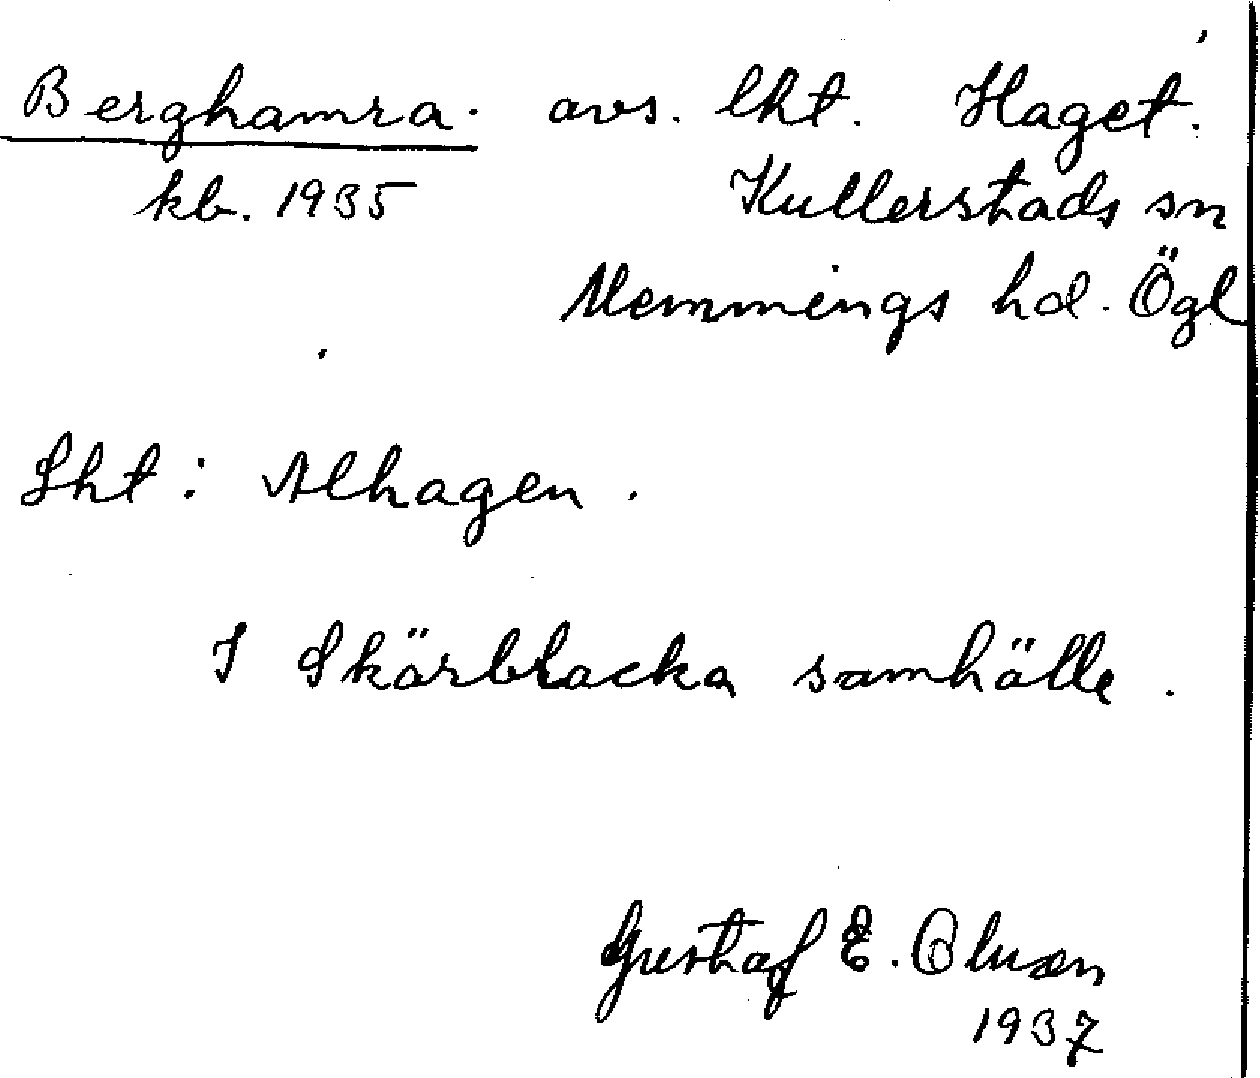 Berghamra. avs. lht. Haget.
kb. 1935 Kullerstads sn
Memmings hd. Ögl
Lht: Alhagen.
I Skärblacka samhälle.
Gustaf E. Olsson
1937